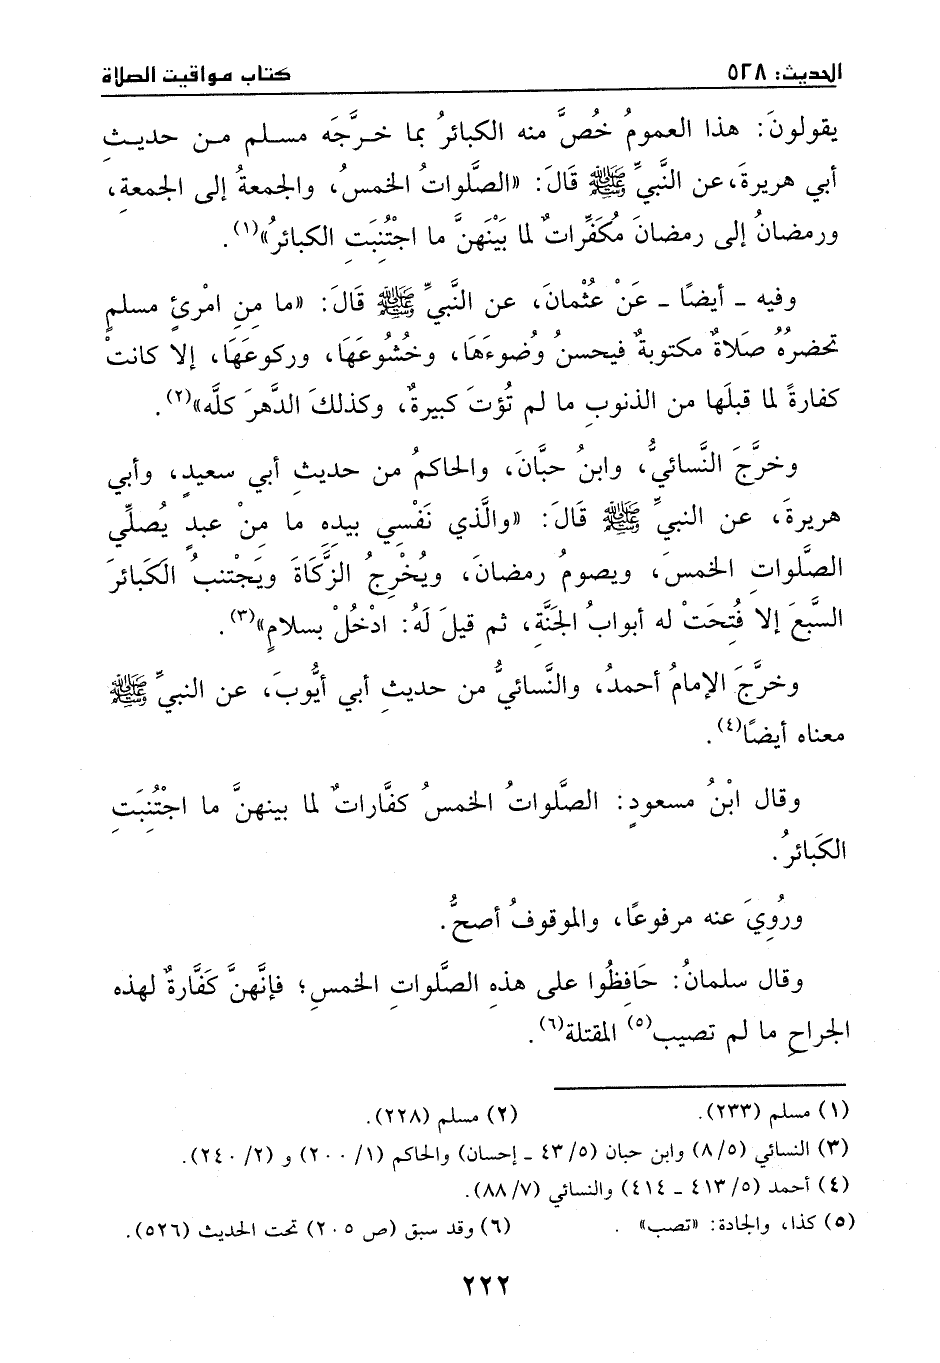 الحديث: ٥٢٨ كتاب مواقيت الصلاة
يقولونَ: هذا العمومُ خُصَّ منه الكبائرُ بما خرَّجَه مسلم من حديثِ
أبي هريرةَ، عن النَّبيِّ ﷺ قَالَ: «الصَّلواتُ الخمسُ، والجمعةُ إلى الجمعةِ،
ورمضانُ إلى رمضانَ مكَفِّراتٌ لما بَيْنَهنَّ ما اجْتُنِبَتِ الكبائرُ»(١).
وفيه ـ أيضًا ـ عَنْ عُثْمانَ، عن النَّبيِّ ﷺ قَالَ: «ما مِنِ امْرئٍ مسلمٍ
تحضرُهُ صَلاةٌ مكتوبةٌ فيحسنُ وُضوءَهَا، وخُشُوعَهَا، وركوعَهَا، إلا كانتْ
كفارةً لما قبلَها من الذنوبِ ما لم تُؤتَ كبيرةٌ، وكذلكَ الدَّهرَ كلَّه»(٢).
وخرَّجَ النَّسائيُّ، وابنُ حبَّانَ، والحاكمُ من حديثِ أبي سعيدٍ، وأبي
هريرةَ، عن النبيِّ ﷺ قَالَ: «والَّذي نَفْسِي بيدِهِ ما مِنْ عبدٍ يُصلِّي
الصَّلواتِ الخمسَ، ويصومُ رمضانَ، ويُخْرِجُ الزَّكَاةَ ويَجْتنبُ الكَبائرَ
السَّبعَ إلا فُتِحَتْ له أبوابُ الجَنَّةِ، ثم قيلَ لَهُ: ادْخُلْ بسلامٍ»(٣).
وخرَّجَ الإمامُ أحمدُ، والنَّسائيُّ من حديثِ أبي أيُّوبَ، عن النبيِّ ﷺ
معناه أيضًا(٤).
وقال ابْنُ مسعودٍ: الصَّلواتُ الخمسُ كفَّاراتٌ لما بينهنَّ ما اجْتُنِبَتِ
الكَبائرُ.
ورُوِيَ عنه مرفوعًا، والموقوفُ أصحُّ.
وقال سلمانُ: حَافِظُوا على هذهِ الصَّلواتِ الخمسِ؛ فإنَّهنَّ كَفَّارةٌ لهذه
الجراحِ ما لم تصيب(٥) المقتلة(٦).
(١) مسلم (٢٣٣). (٢) مسلم (٢٢٨).
(٣) النسائي (٥/ ٨) وابن حبان (٥/ ٤٣ ـ إحسان) والحاكم (١/ ٢٠٠) و (٢/ ٢٤٠).
(٤) أحمد (٥/ ٤١٣ ـ ٤١٤) والنسائي (٧/ ٨٨).
(٥) كذا، والجادة: «تصب» . (٦) وقد سبق (ص ٢٠٥) تحت الحديث (٥٢٦).
٢٢٢